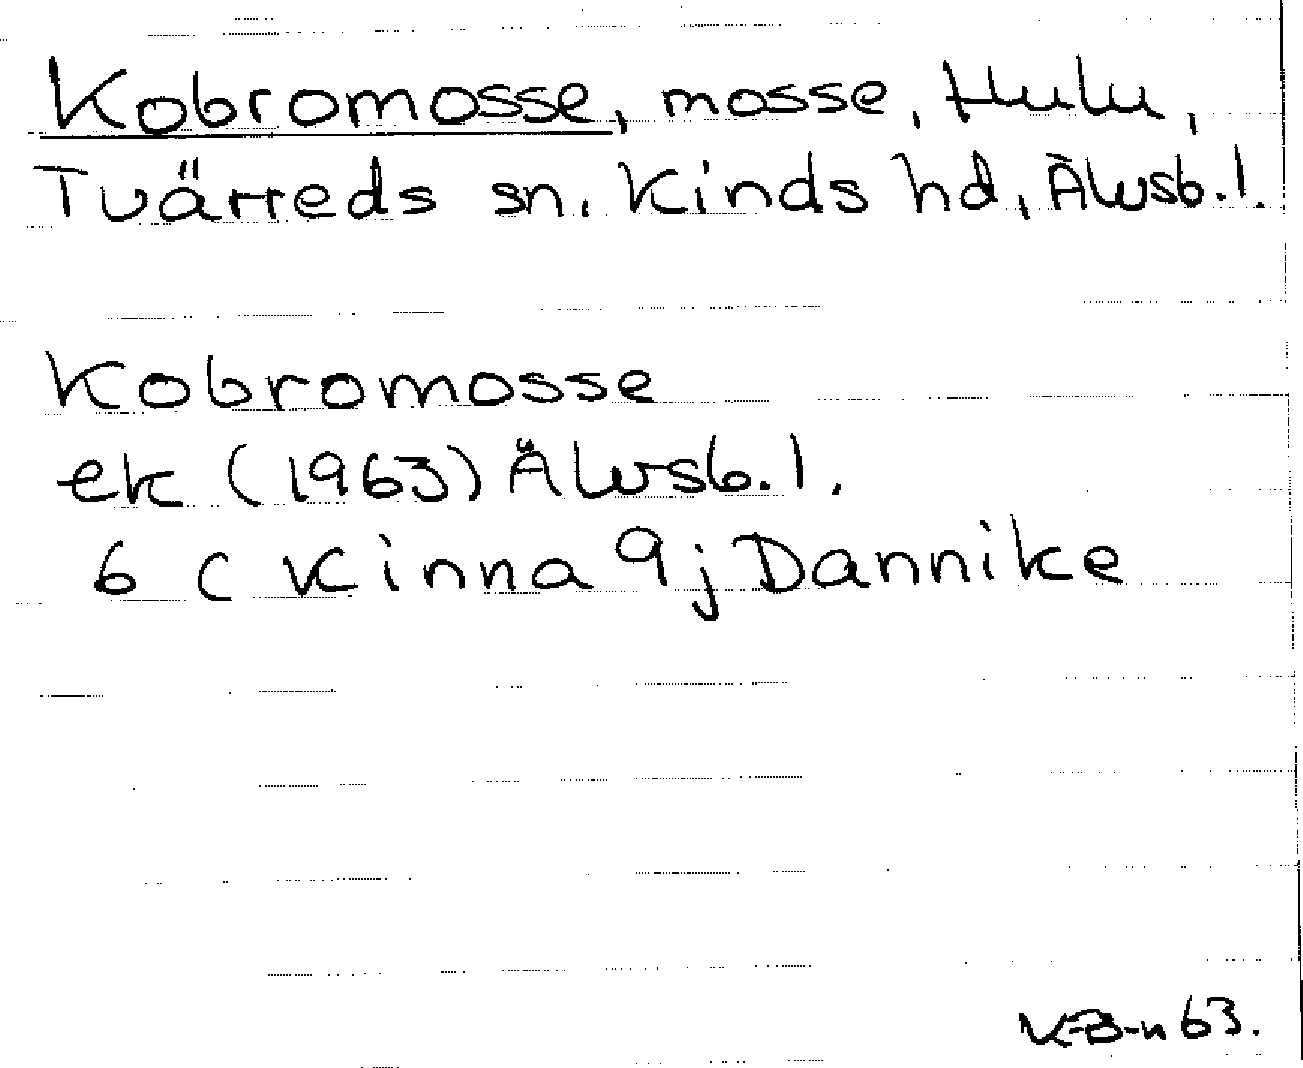 Kobromosse, mosse, Hulu,
Tvärreds sn. Kinds hd, Älvsb.l.
Kobromosse
ek (1963) Älvsb.l.
6 C Kinna 9j Dannike
K-B-n 63.